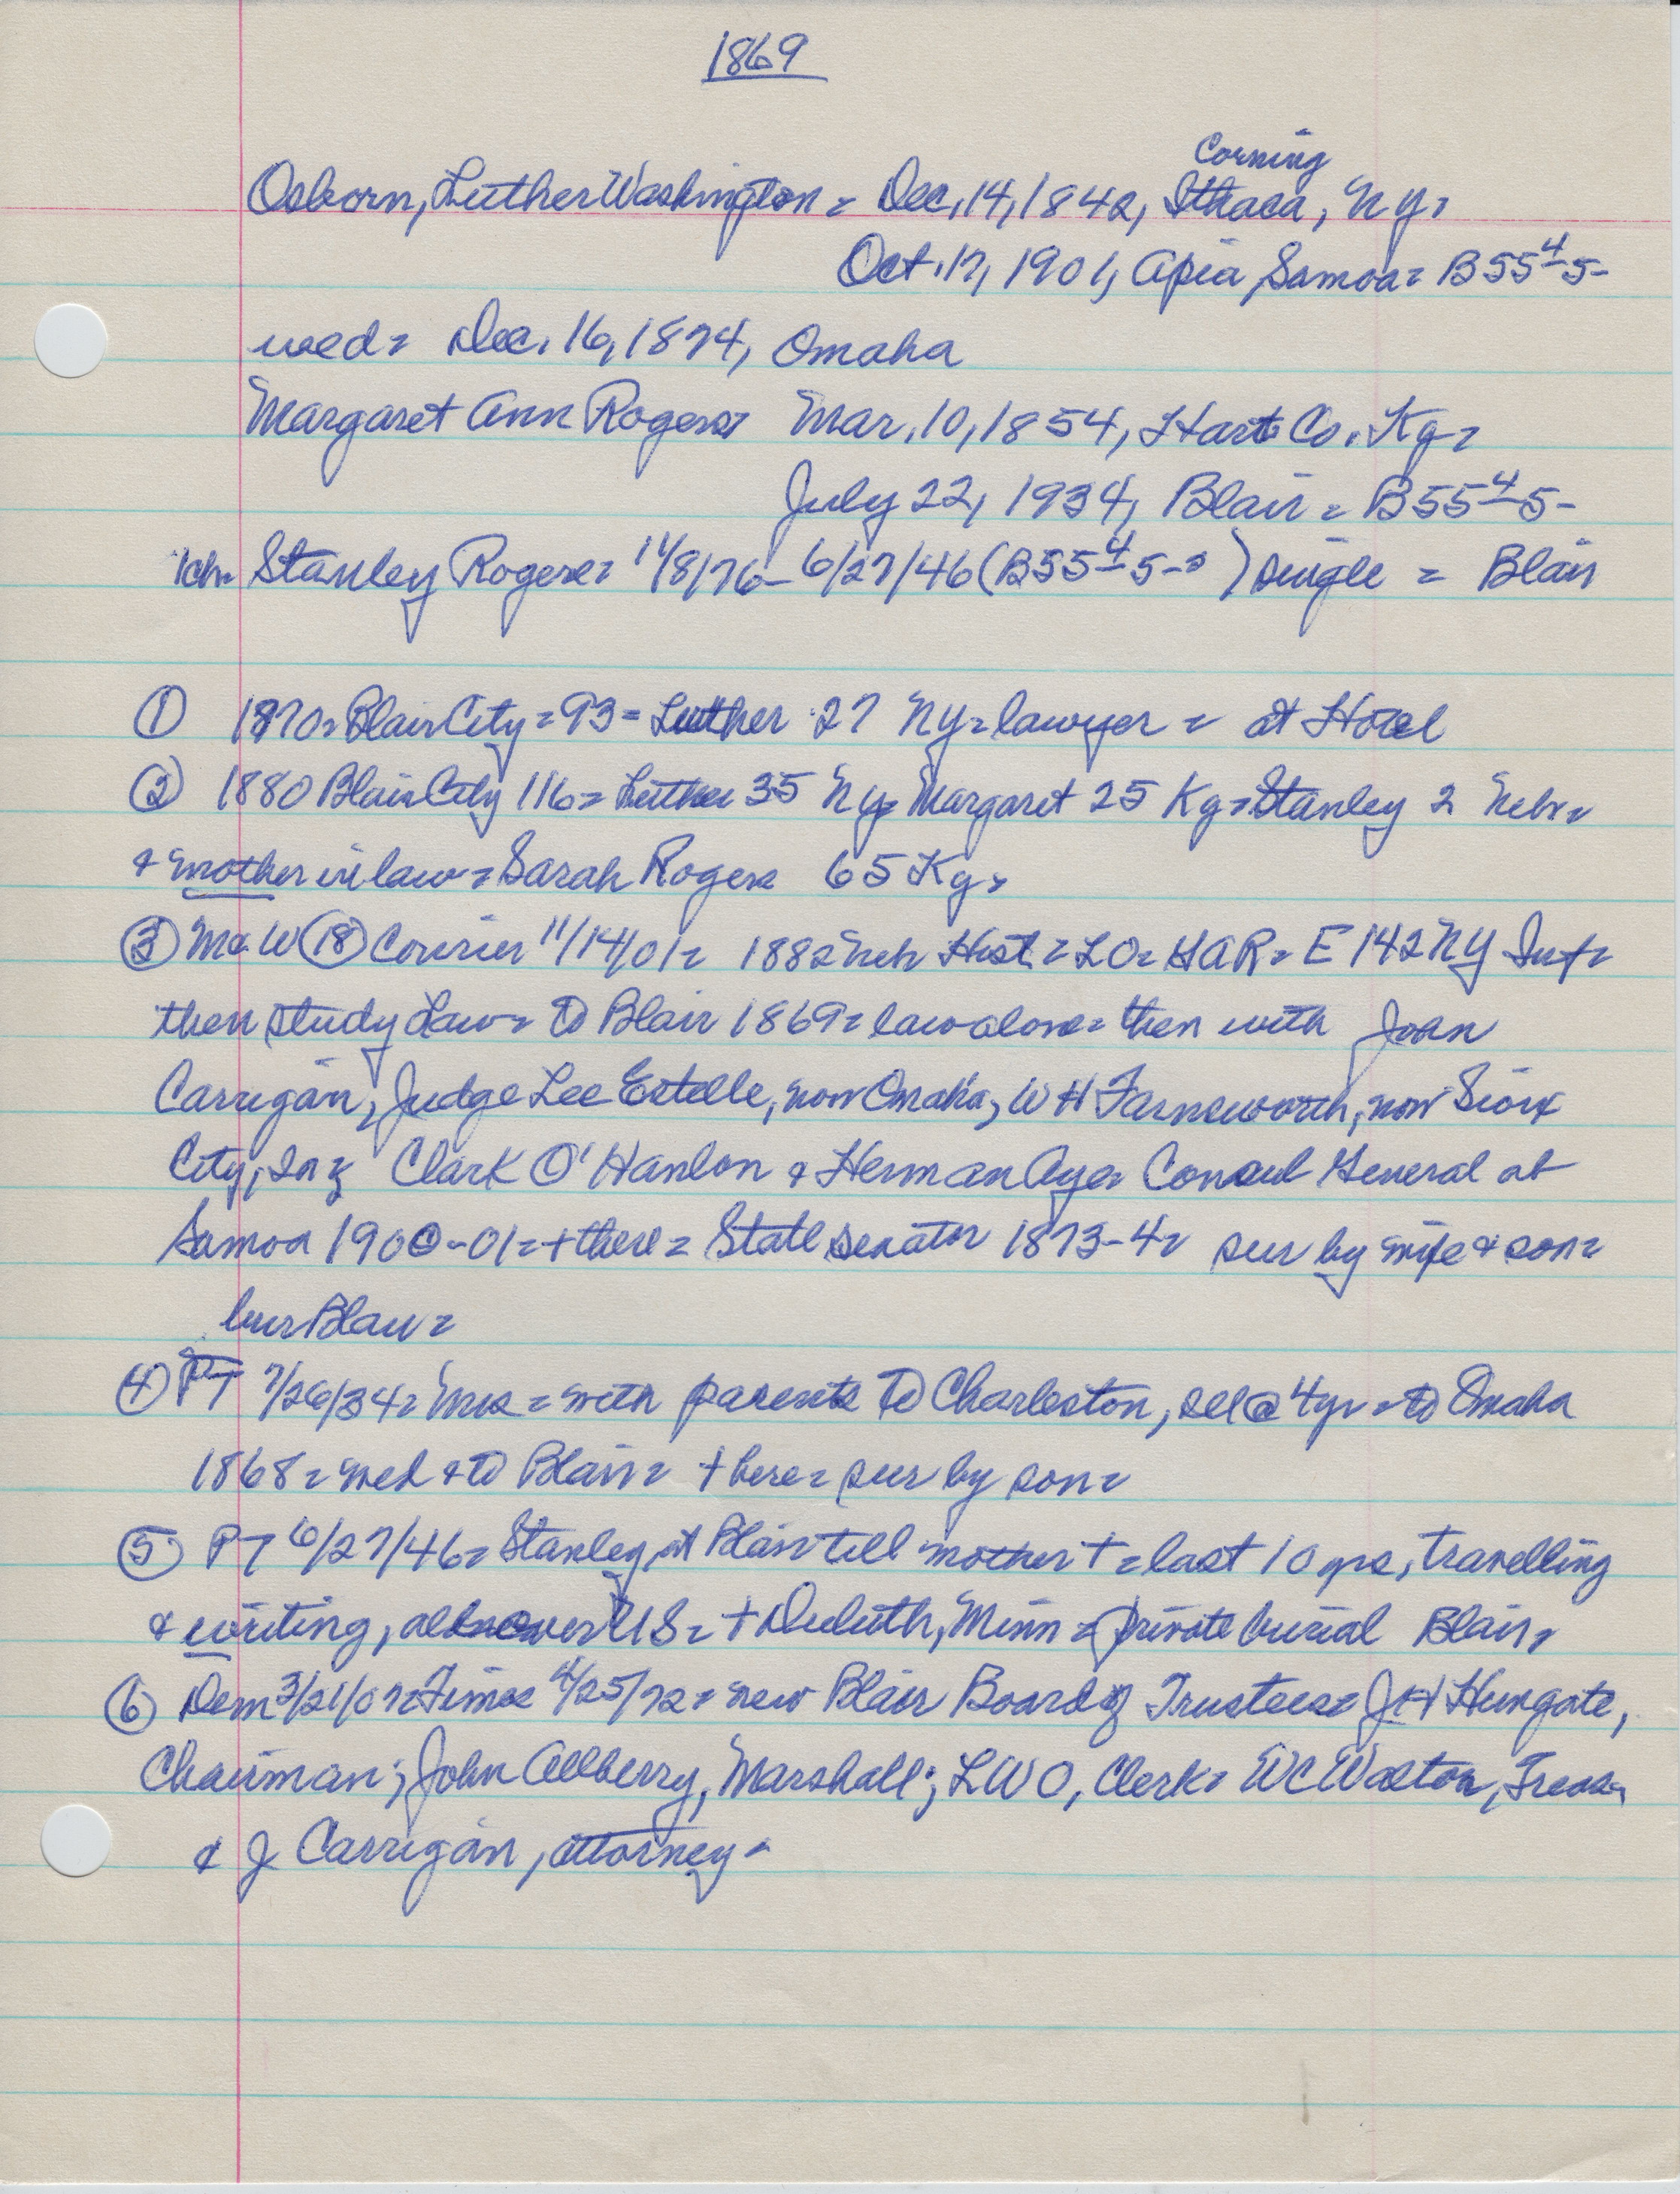 1869
Corning
Osborn, Luther Washington = Dec. 14, 1842, Ithaca, NY =
Oct. 17, 1901, Apia, Samoa = B55 4-5-
wed = Dec. 16, 1874, Omaha
Margaret Ann Rogers = Mar. 10, 1854, Hart Co. Ky =
July 22, 1934, Blair = B55 4-5-
1ch = Stanley Rogers = 11/8/76 - 6/27/46 (B55 4-5- ) single = Blair
① 1870 = Blair City = 93 = Luther 27 NY = lawyer = at Hotel
② 1880 Blair City 116 = Luther 35 NY = Margaret 25 Ky = Stanley 2 Nebr =
+ mother in law = Sarah Rogers 65 Ky =
③ Mc W ⑱ Courier 11/14/01 = 1882 Neb Hist = LO = GAR = E 142 NY Inf =
then study Law = to Blair 1869 = law alone = then with John
Carrigan, Judge Lee Estelle, now Omaha, W H Farnsworth, now Sioux
City, Clark O'Hanlon + Herman Aye = Consul General at
Samoa 1900-01 = + there = State Senator 1873-4 = sur by wife + son =
bur Blair =
④ PT 7/26/34 = Mrs = with parents to Charleston, Ill @ 4yr = to Omaha
1868 = wed + to Blair = + here = sur by son =
⑤ PT 6/27/46 = Stanley, at Blair till mother + = last 10 yrs, travelling
+ writing, all over US = + Duluth, Minn = private burial Blair =
⑥ Dem 3/21/07 = Times 4/25/72 = new Blair Board of Trustees = J H Hungate,
Chairman; John Allberry, Marshall; L W O, Clerk = WC Walton, Treas =
+ J Carrigan, attorney =